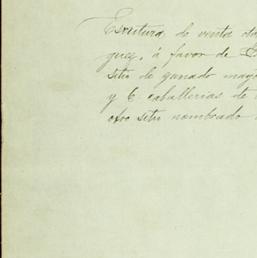 Escritura de venta
guez, á favor de
sitio de ganado mayo
y 6 caballerias de
otro sitio nombrado